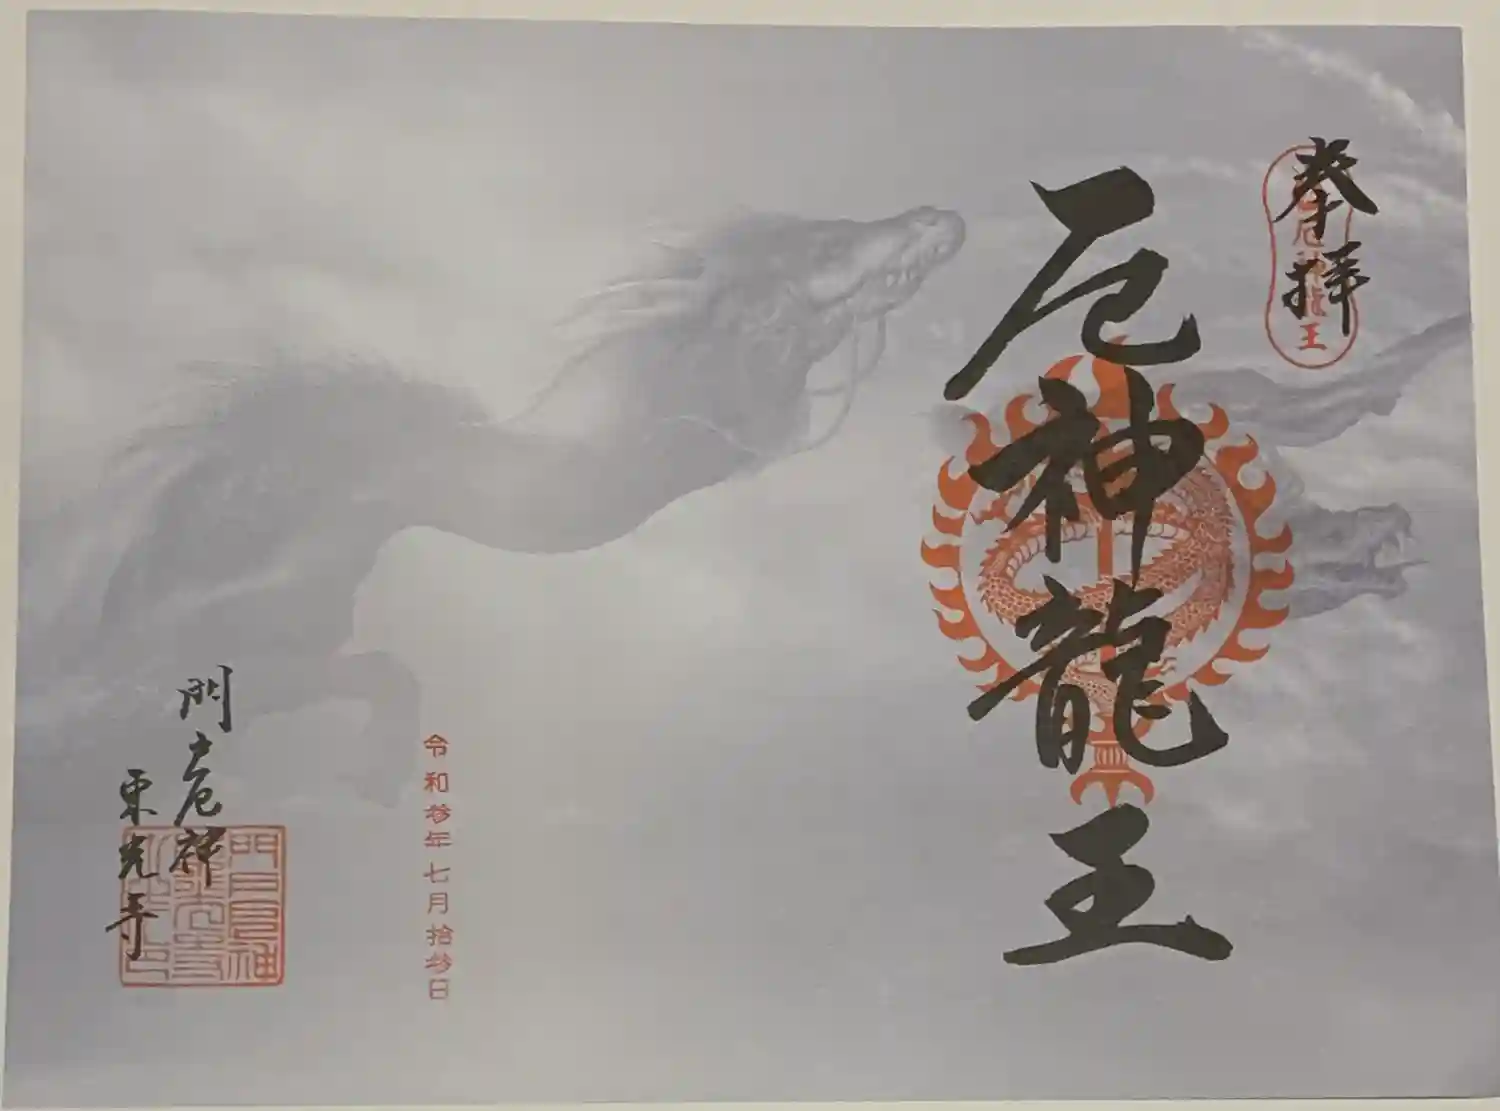 奉拝
厄神龍王
令和参年七月拾参日
門戸厄神
東光寺
門戸厄神